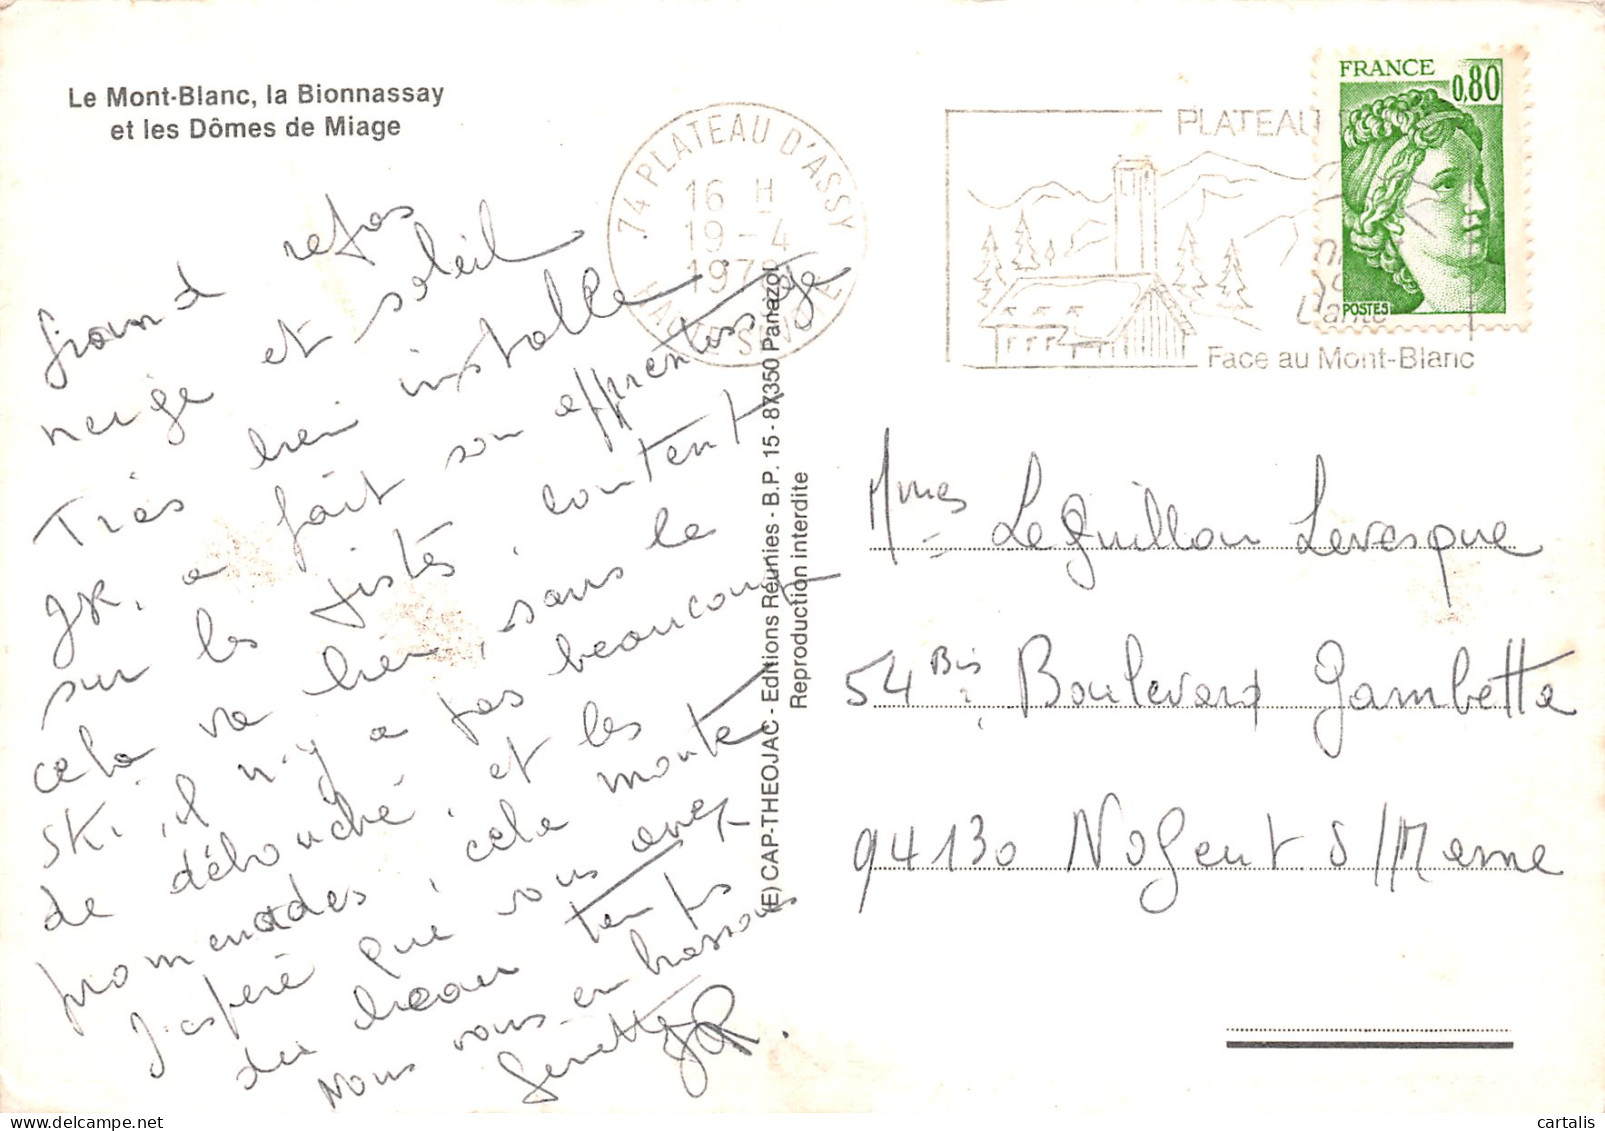 Le Mont-Blanc, la Bionnassay
et les Dômes de Miage
74 PLATEAU D'ASSY
16 H
19-4
1978
HAUTE SAVOIE
PLATEAU
Santé
Face au Mont-Blanc
FRANCE
0,80
POSTES
Grand repos
neige et soleil
Très bien installé
JR. a fait son apprentissage
sur les pistes, content
cela va bien, sans le
ski, il n'y a pas beaucoup
de débouché, et les
promenades, cela monte
J'espère que vous avez
du beau temps
Nous vous embrassons
Ginette JR.
(E) CAP-THEOJAC - Editions Réunies - B.P. 15 - 87350 Panazol
Reproduction interdite
Mmes LeGuillou Levesque
54 Bis, Boulevard Gambetta
94130 Nogent S/Marne
cartalis
delcampe.net